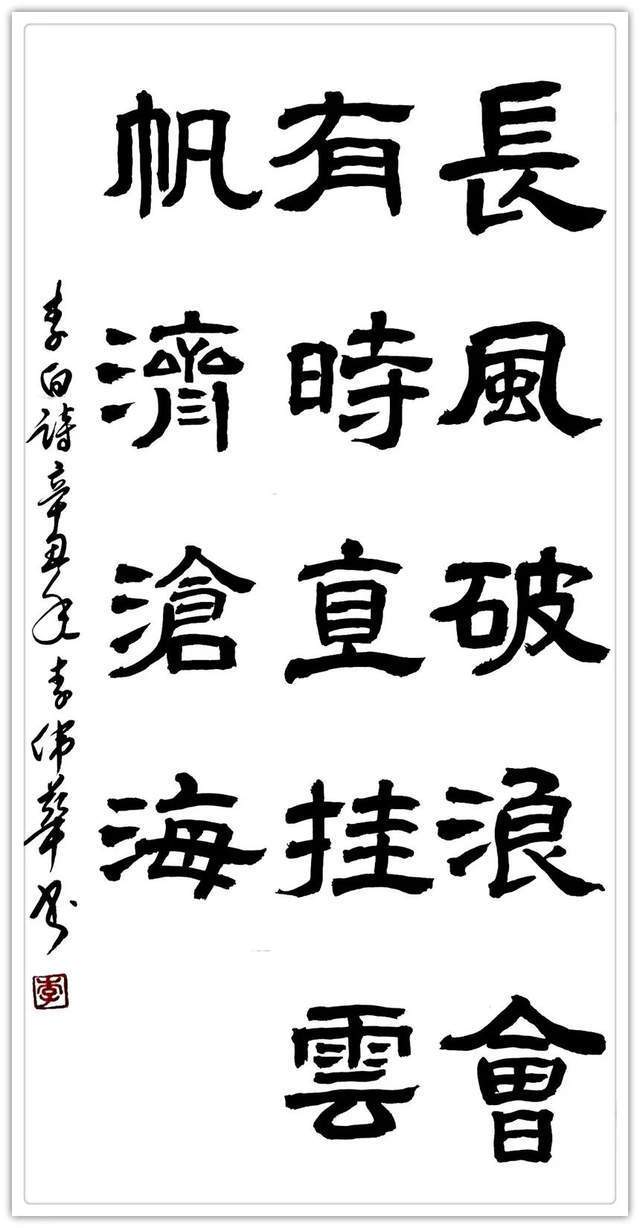 長風破浪會
有時直挂雲
帆濟滄海
李白詩辛丑年李偉華书
李